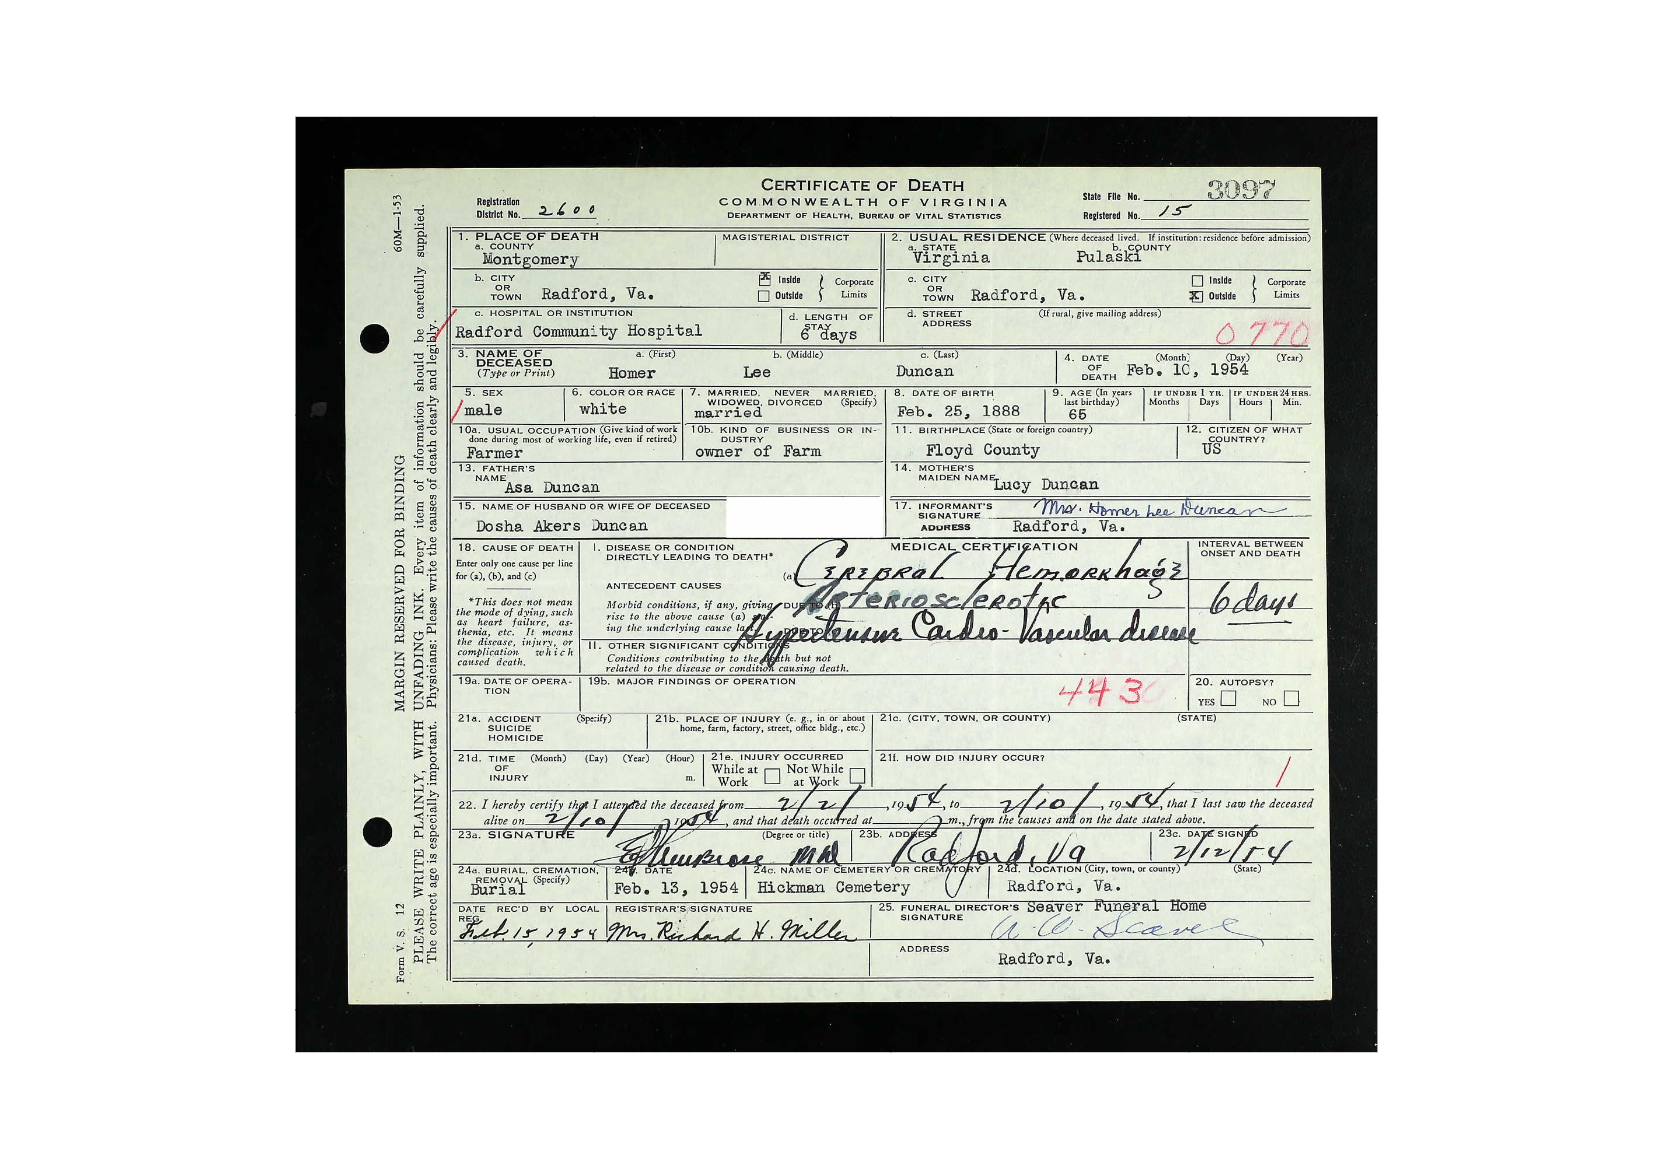 CERTIFICATE OF DEATH
COMMONWEALTH OF VIRGINIA
DEPARTMENT OF HEALTH, BUREAU OF VITAL STATISTICS
Registration District No. 2600
State File No. 3097
Registered No. 15
1. PLACE OF DEATH
a. COUNTY
Montgomery
MAGISTERIAL DISTRICT
2. USUAL RESIDENCE (Where deceased lived. If institution: residence before admission)
a. STATE
Virginia
b. COUNTY
Pulaski
b. CITY OR TOWN Radford, Va.
Inside
Outside
Corporate Limits
c. CITY OR TOWN Radford, Va.
Inside
Outside
Corporate Limits
c. HOSPITAL OR INSTITUTION
Radford Community Hospital
d. LENGTH OF STAY
6 days
d. STREET ADDRESS
(If rural, give mailing address)
0770
3. NAME OF DECEASED
(Type or Print)
a. (First)
Homer
b. (Middle)
Lee
c. (Last)
Duncan
4. DATE OF DEATH
(Month) (Day) (Year)
Feb. 10, 1954
5. SEX
male
6. COLOR OR RACE
white
7. MARRIED, NEVER MARRIED, WIDOWED, DIVORCED (Specify)
married
8. DATE OF BIRTH
Feb. 25, 1888
9. AGE (In years last birthday)
65
IF UNDER 1 YR.
Months Days
IF UNDER 24 HRS.
Hours Min.
10a. USUAL OCCUPATION (Give kind of work done during most of working life, even if retired)
Farmer
10b. KIND OF BUSINESS OR INDUSTRY
owner of Farm
11. BIRTHPLACE (State or foreign country)
Floyd County
12. CITIZEN OF WHAT COUNTRY?
US
13. FATHER'S NAME
Asa Duncan
14. MOTHER'S MAIDEN NAME
Lucy Duncan
15. NAME OF HUSBAND OR WIFE OF DECEASED
Dosha Akers Duncan
17. INFORMANT'S SIGNATURE Mrs. Homer Lee Duncan
ADDRESS Radford, Va.
18. CAUSE OF DEATH
Enter only one cause per line for (a), (b), and (c)
*This does not mean the mode of dying, such as heart failure, asthenia, etc. It means the disease, injury, or complication which caused death.
MEDICAL CERTIFICATION
I. DISEASE OR CONDITION DIRECTLY LEADING TO DEATH*
(a) Cerebral Hemorrhage
ANTECEDENT CAUSES
Morbid conditions, if any, giving rise to the above cause (a) stating the underlying cause last.
DUE TO
Arteriosclerotic
DUE TO
Hypertensive Cardio-Vascular disease
INTERVAL BETWEEN ONSET AND DEATH
6 days
II. OTHER SIGNIFICANT CONDITIONS
Conditions contributing to the death but not related to the disease or condition causing death.
19a. DATE OF OPERATION
19b. MAJOR FINDINGS OF OPERATION
443
20. AUTOPSY?
YES NO
21a. ACCIDENT SUICIDE HOMICIDE
(Specify)
21b. PLACE OF INJURY (e. g., in or about home, farm, factory, street, office bldg., etc.)
21c. (CITY, TOWN, OR COUNTY)
(STATE)
21d. TIME OF INJURY
(Month) (Day) (Year) (Hour)
m.
21e. INJURY OCCURRED
While at Work
Not While at Work
21f. HOW DID INJURY OCCUR?
22. I hereby certify that I attended the deceased from 2/2/, 1954, to 2/10/, 1954, that I last saw the deceased
alive on 2/10/ 1954, and that death occurred at m., from the causes and on the date stated above.
23a. SIGNATURE
(Degree or title)
MD
23b. ADDRESS
Radford, Va
23c. DATE SIGNED
2/12/54
24a. BURIAL, CREMATION, REMOVAL (Specify)
Burial
24b. DATE
Feb. 13, 1954
24c. NAME OF CEMETERY OR CREMATORY
Hickman Cemetery
24d. LOCATION (City, town, or county) (State)
Radford, Va.
DATE REC'D BY LOCAL REG.
Feb. 15, 1954
REGISTRAR'S SIGNATURE
Mrs. Richard H. Miller
25. FUNERAL DIRECTOR'S SIGNATURE
Seaver Funeral Home
ADDRESS
Radford, Va.
Form V. S. 12
MARGIN RESERVED FOR BINDING
60M—1-53
PLEASE WRITE PLAINLY, WITH UNFADING INK. Every item of information should be carefully supplied.
The correct age is especially important. Physicians: Please write the causes of death clearly and legibly.